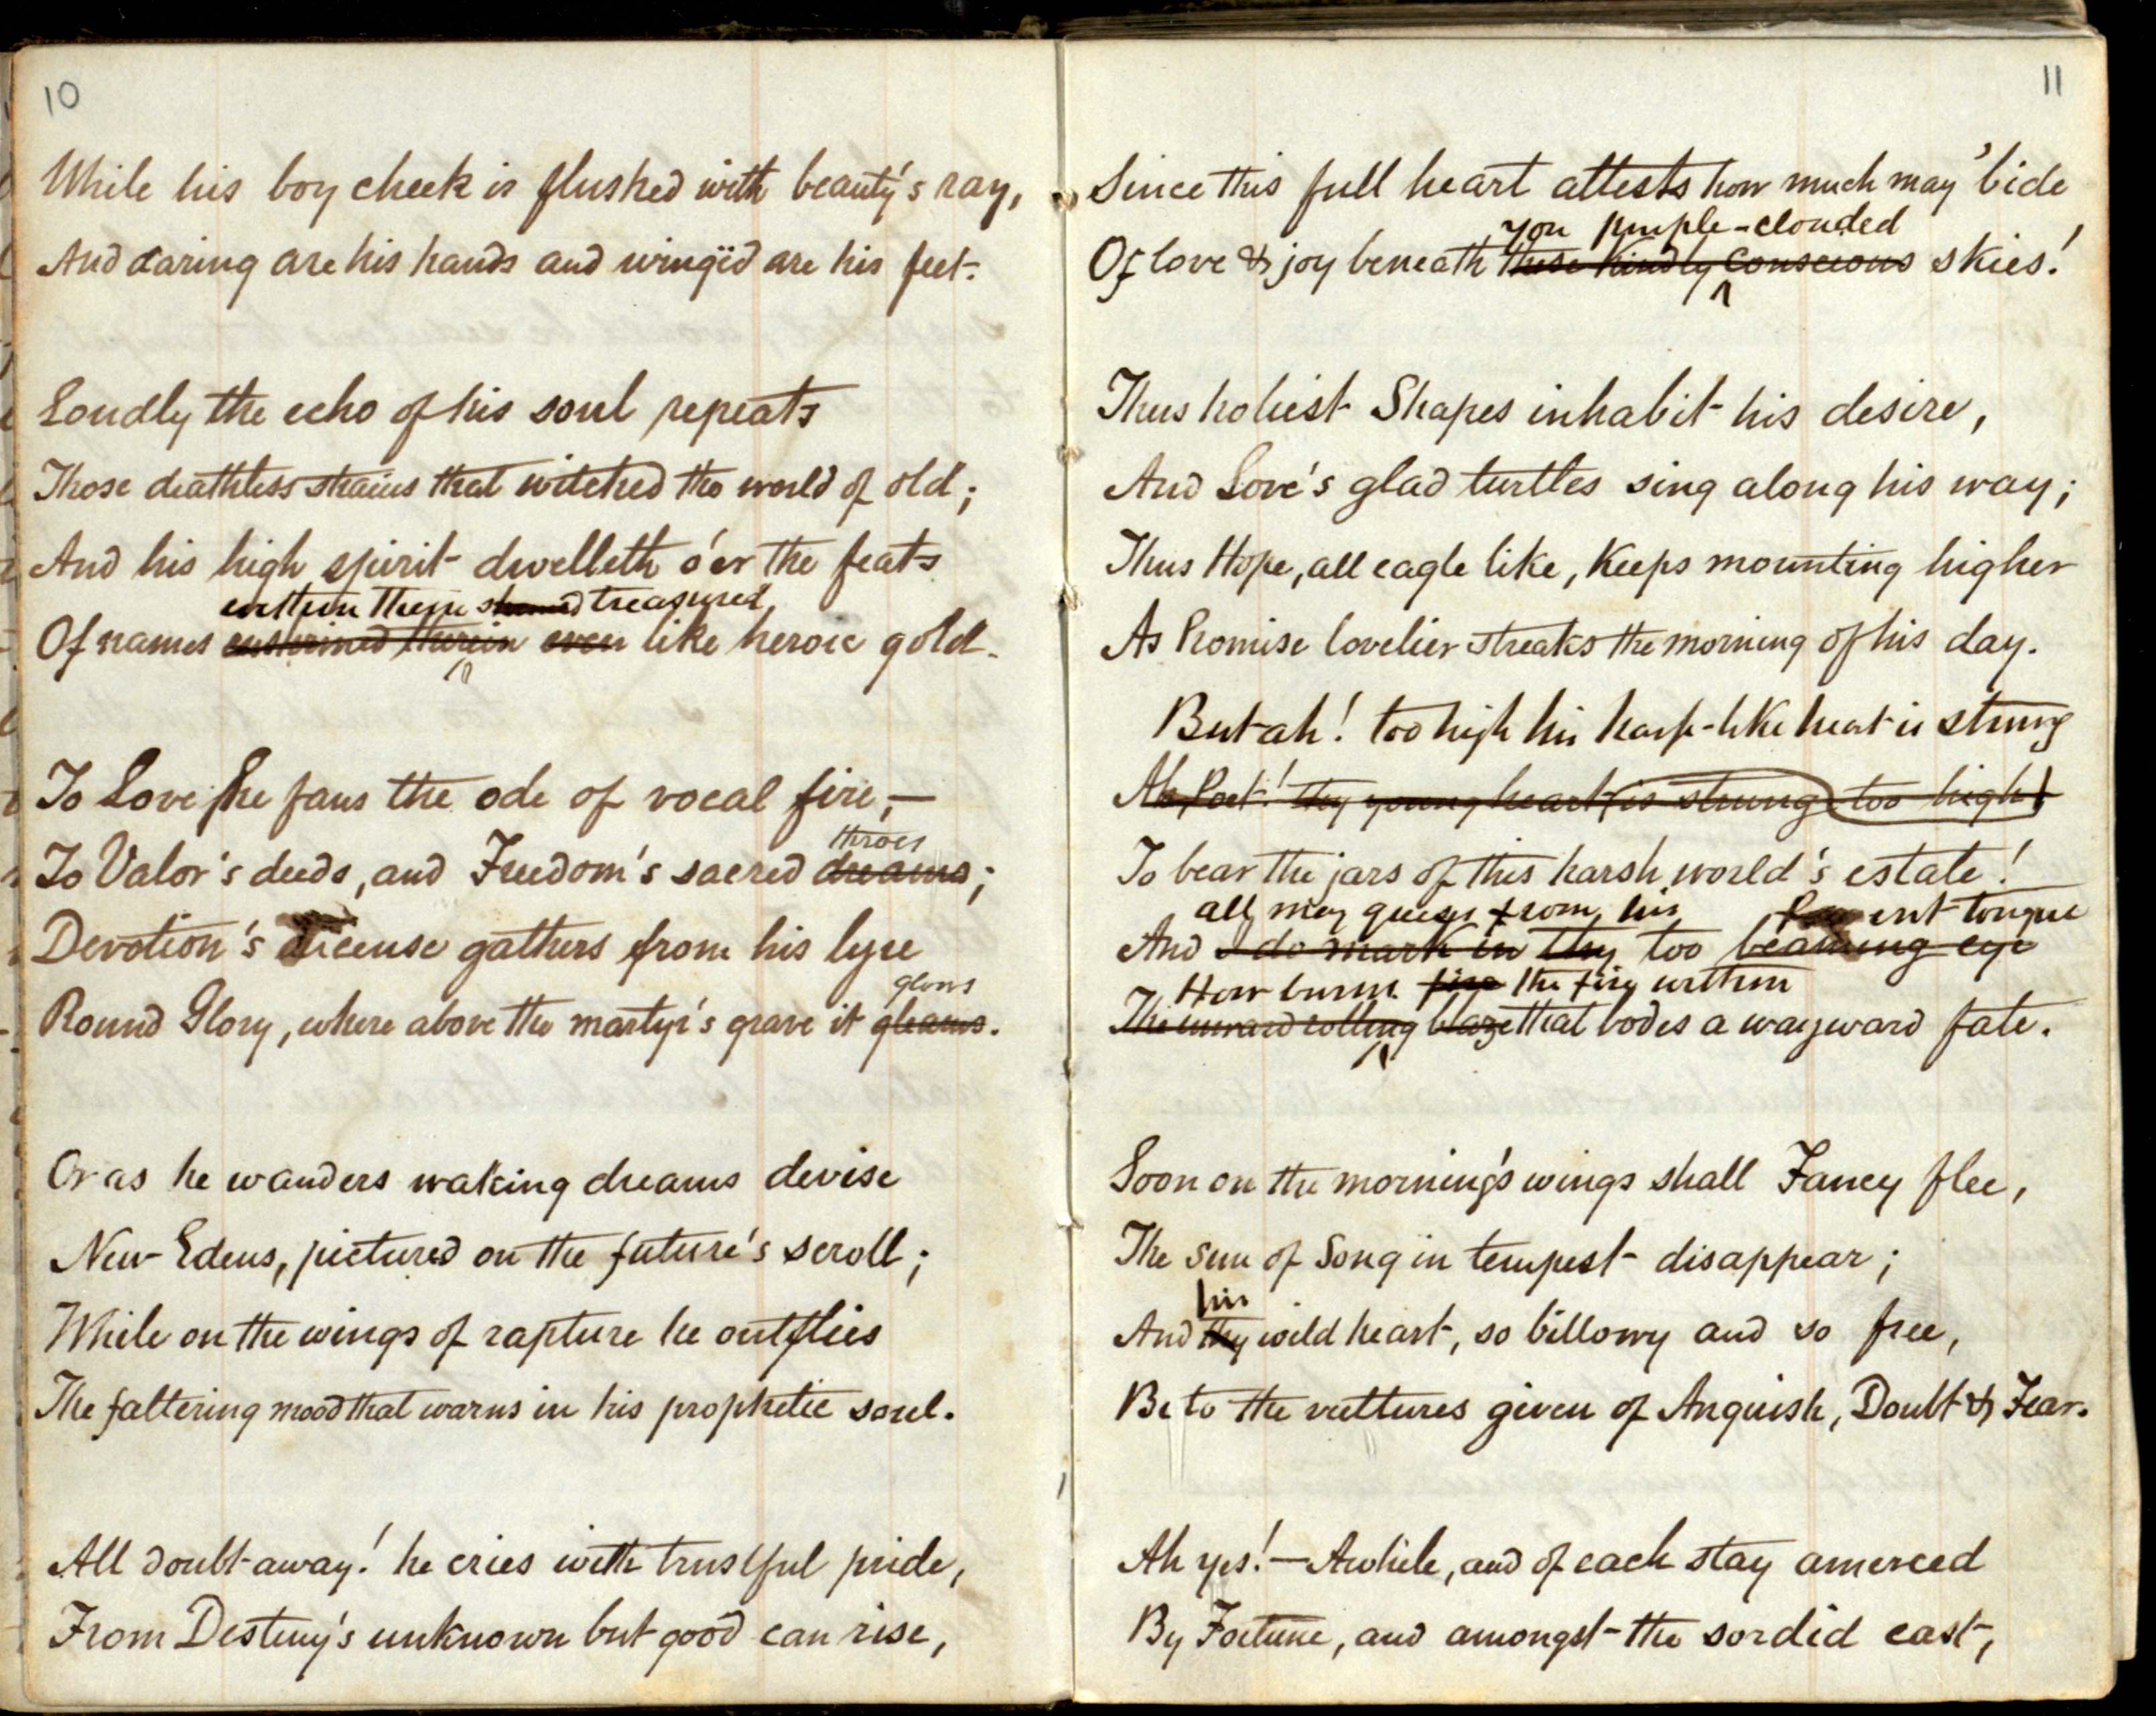 10
While his boy cheek is flushed with beauty's ray,
And daring are his hands and wingëd are his feet.
Loudly the echo of his soul repeats
Those deathless strains that witched the world of old;
And his high spirit dwelleth o'er the feats
within them shrined treasured,
Of names enshrined therein even like heroic gold.
To Love he fans the ode of vocal fire,—
throes
To Valor's deeds, and Freedom's sacred dreams;
Devotion's incense gathers from his lyre
glows
Round Glory, where above the martyr's grave it gleams.
Or as he wanders waking dreams devise
New Edens, pictured on the future's scroll;
While on the wings of rapture he outflies
The faltering mood that warns in his prophetic soul.
All doubt away! he cries with trustful pride,
From Destiny's unknown but good can rise,
11
Since this full heart attests how much may 'bide
yon purple-clouded
Of love & joy beneath those kindly conscious skies!
Thus holiest Shapes inhabit his desire,
And Love's glad turtles sing along his way;
Thus Hope, all eagle like, keeps mounting higher
As Promise lovelier streaks the morning of his day.
But ah! too high his harp-like heart is strung
Ah Poet! thy young heart is strung too high
To bear the jars of this harsh world's estate!
all may guess from his ent tongue
And I do mark in thy too beaming eye
How burns fire the fire within
The inward rolling blaze that bodes a wayward fate.
Soon on the morning's wings shall Fancy flee,
The sun of Song in tempest disappear;
his
And thy wild heart, so billowy and so free,
Be to the vultures given of Anguish, Doubt & Fear.
Ah yes!—Awhile, and of each stay amerced
By Fortune, and amongst the sordid cast,